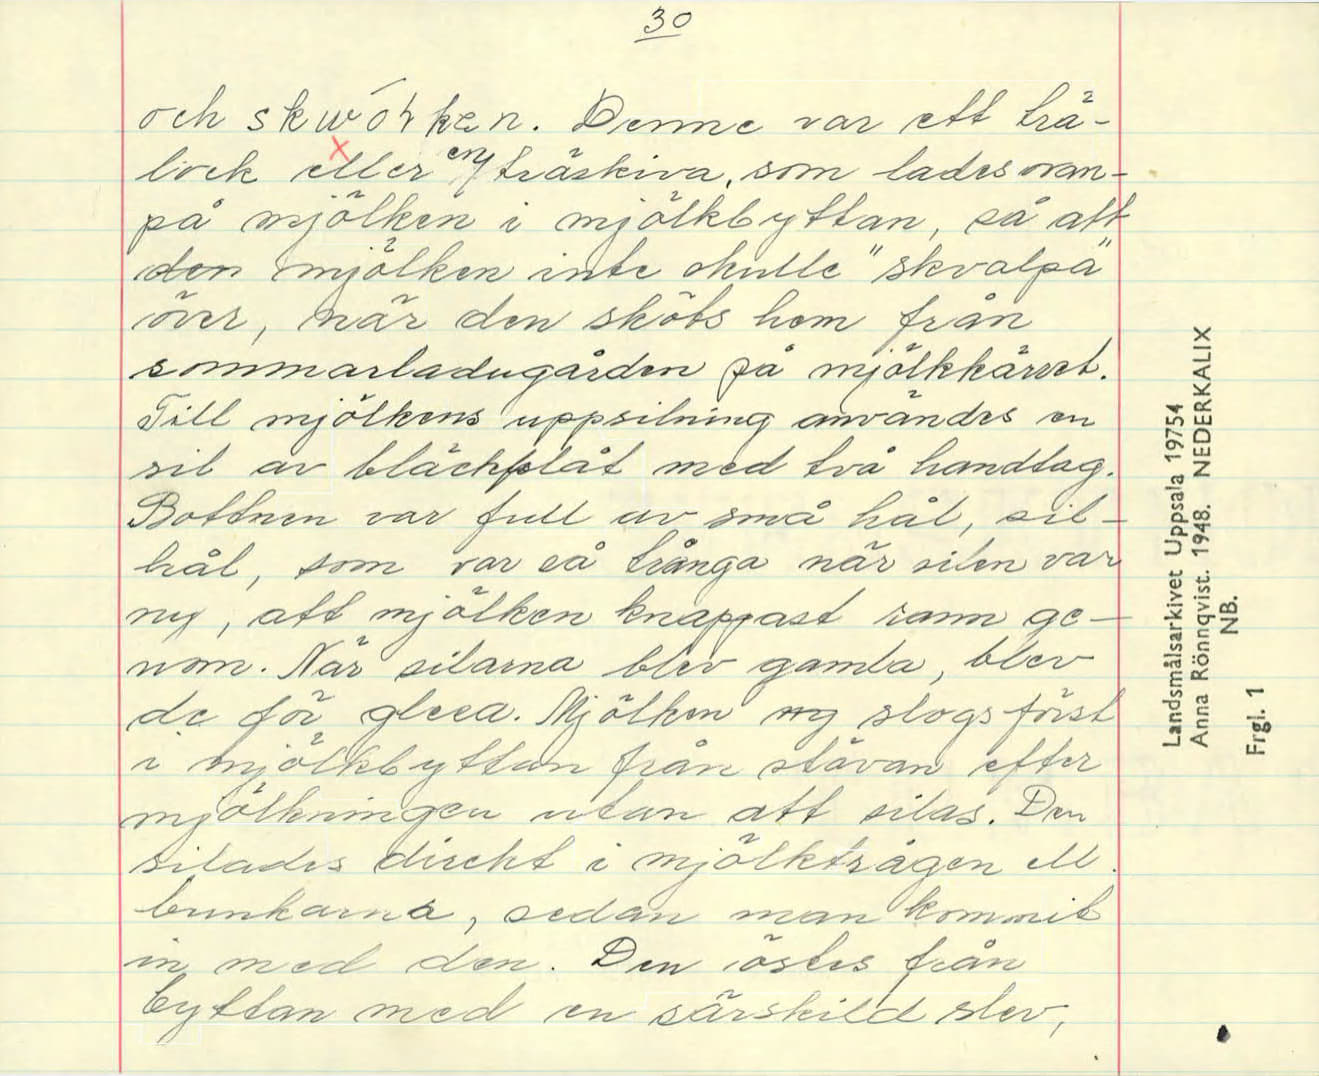 30
och skwórken. Denne var ett trä-
lock eller en träskiva, som lades ovan-
på mjölken i mjölkbyttan, så att
den mjölken inte skulle "skvalpa"
över, när den sköts hem från
sommarladugården på mjölkkärret.
Till mjölkens uppsilning användes en
sil av bläckplåt med två handtag.
Bottnen var full av små hål, sil-
hål, som var så trånga när silen var
ny, att mjölken knappast rann ge-
nom. När silarna blev gamla, blev
de för glesa. Mjölken ny slogs först
i mjölkbyttan från stävan efter
mjölkningen utan att silas. Den
silades direkt i mjölktrågen ell.
bunkarna, sedan man kommit
in med den. Den östes från
byttan med en särskild slev,
Landsmålsarkivet Uppsala 19754
Anna Rönnqvist. 1948. NEDERKALIX
NB.
Frgl. 1